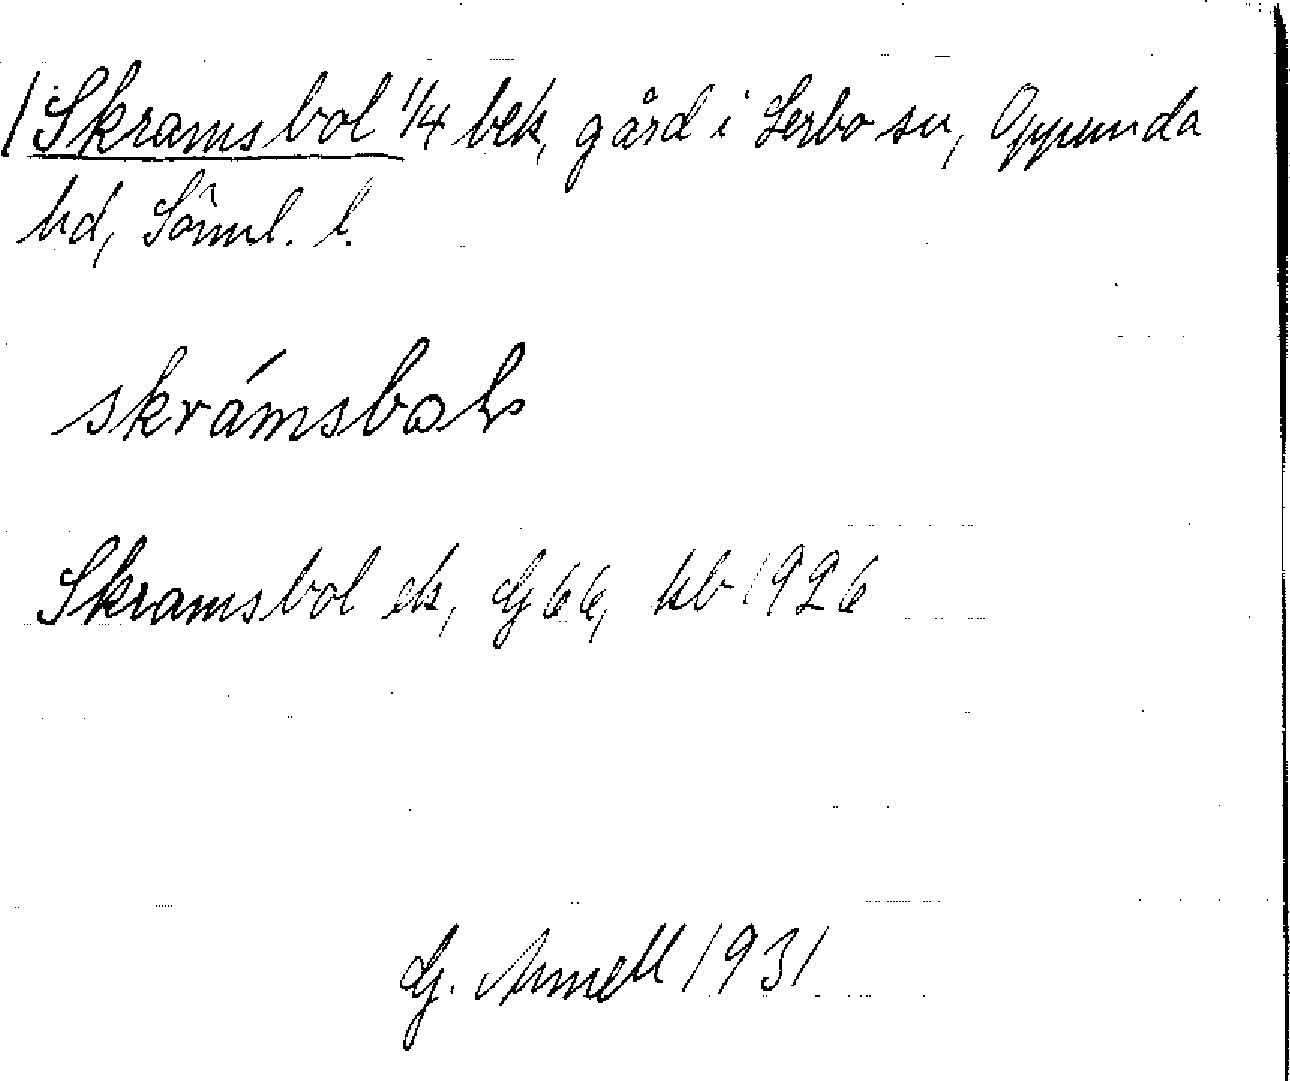 /Skramsbol 1/4 bek, gård i Lerbo sn, Oppunda
hd, Söml. l.
skrámsbol
Skramsbol ek, G 66, kb 1926
G. 1931